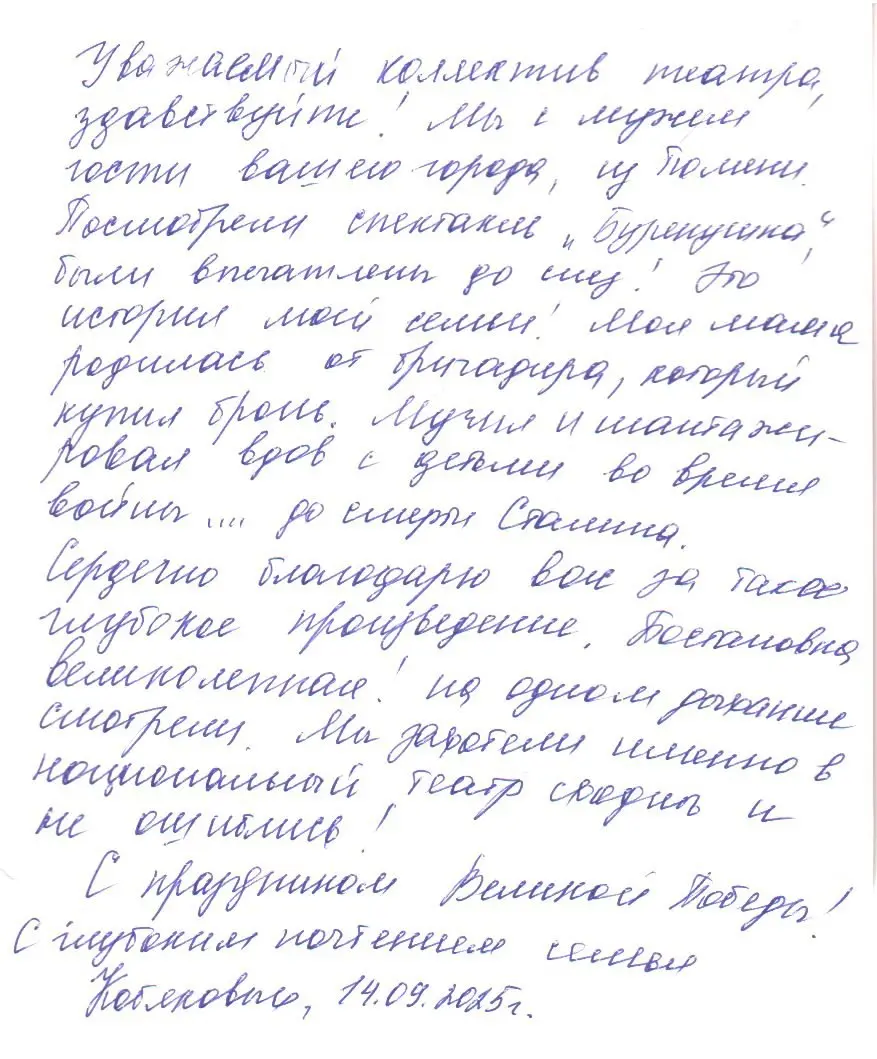 Уважаемый коллектив театра,
здравствуйте! Мы с мужем
гости вашего города, из Тюмени.
Посмотрели спектакль „Буренушка“,
были впечатлены до слез! Это
история моей семьи! Моя мама
родилась от бригадира, который
купил бронь. Мучил и шантажи-
ровал вдов с детьми во время
войны .... до смерти Сталина.
Сердечно благодарю вас за такое
глубокое произведение. Постановка
великолепная! на одном дыхание
смотрели. Мы захотели именно в
национальный театр сходить и
не ошиблись!
С праздником Великой Победы!
С глубоким почтением семья
14.09.2025г.